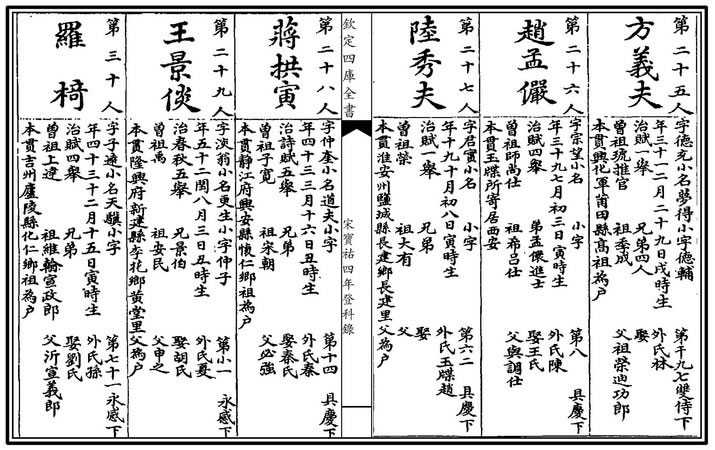 第二十五人
方義夫
字德充小名夢得小字德輔
年三十一二月二十九日戌時生
治賦一舉
兄弟四人
曾祖琥推官
祖季成
本貫興化軍莆田縣髙祖為戶
第千九七雙侍下
外氏林
娶
父祖榮迪功郎
第二十六人
趙孟儼
字宗望小名
小字
年三十九七月初三日寅時生
治賦四舉
弟孟儼進士
曾祖師卨仕
祖希吕仕
本貫玉牒所寄居西安
第八
具慶下
外氏陳
娶王氏
父與詷仕
第二十七人
陸秀夫
字君實小名
小字
年十九十月初八日寅時生
治賦一舉
兄弟
曾祖榮
祖大有
本貫淮安州鹽城縣長建鄉長建里
父為戶
第六二
具慶下
外氏玉牒趙
娶
父
欽定四庫全書
宋寶祐四年登科錄
第二十八人
蔣拱寅
字仲奎小名道夫小字
年四十三三月十六日丑時生
治詩賦五舉
兄弟
曾祖子寛
祖宋朝
本貫靜江府興安縣懷仁鄉祖為戶
第十四
具慶下
外氏秦
娶秦氏
父必強
第二十九人
王景倓
字淡翁小名更生小字仲子
年五十二閏八月三日丑時生
治春秋五舉
兄景伯
曾祖禹
祖安民
本貫隆興府新建縣孝花鄉黄堂里
父為戶
第小一
永感下
外氏夏
娶胡氏
父申之
第三十人
羅椅
字子遠小名天驥小字
年四十三十二月十五日寅時生
治賦四舉
兄弟
曾祖上達
祖維翰宣政郎
本貫吉州廬陵縣化仁鄉祖為戶
第七十一
永感下
外氏孫
娶劉氏
父沂宣義郎